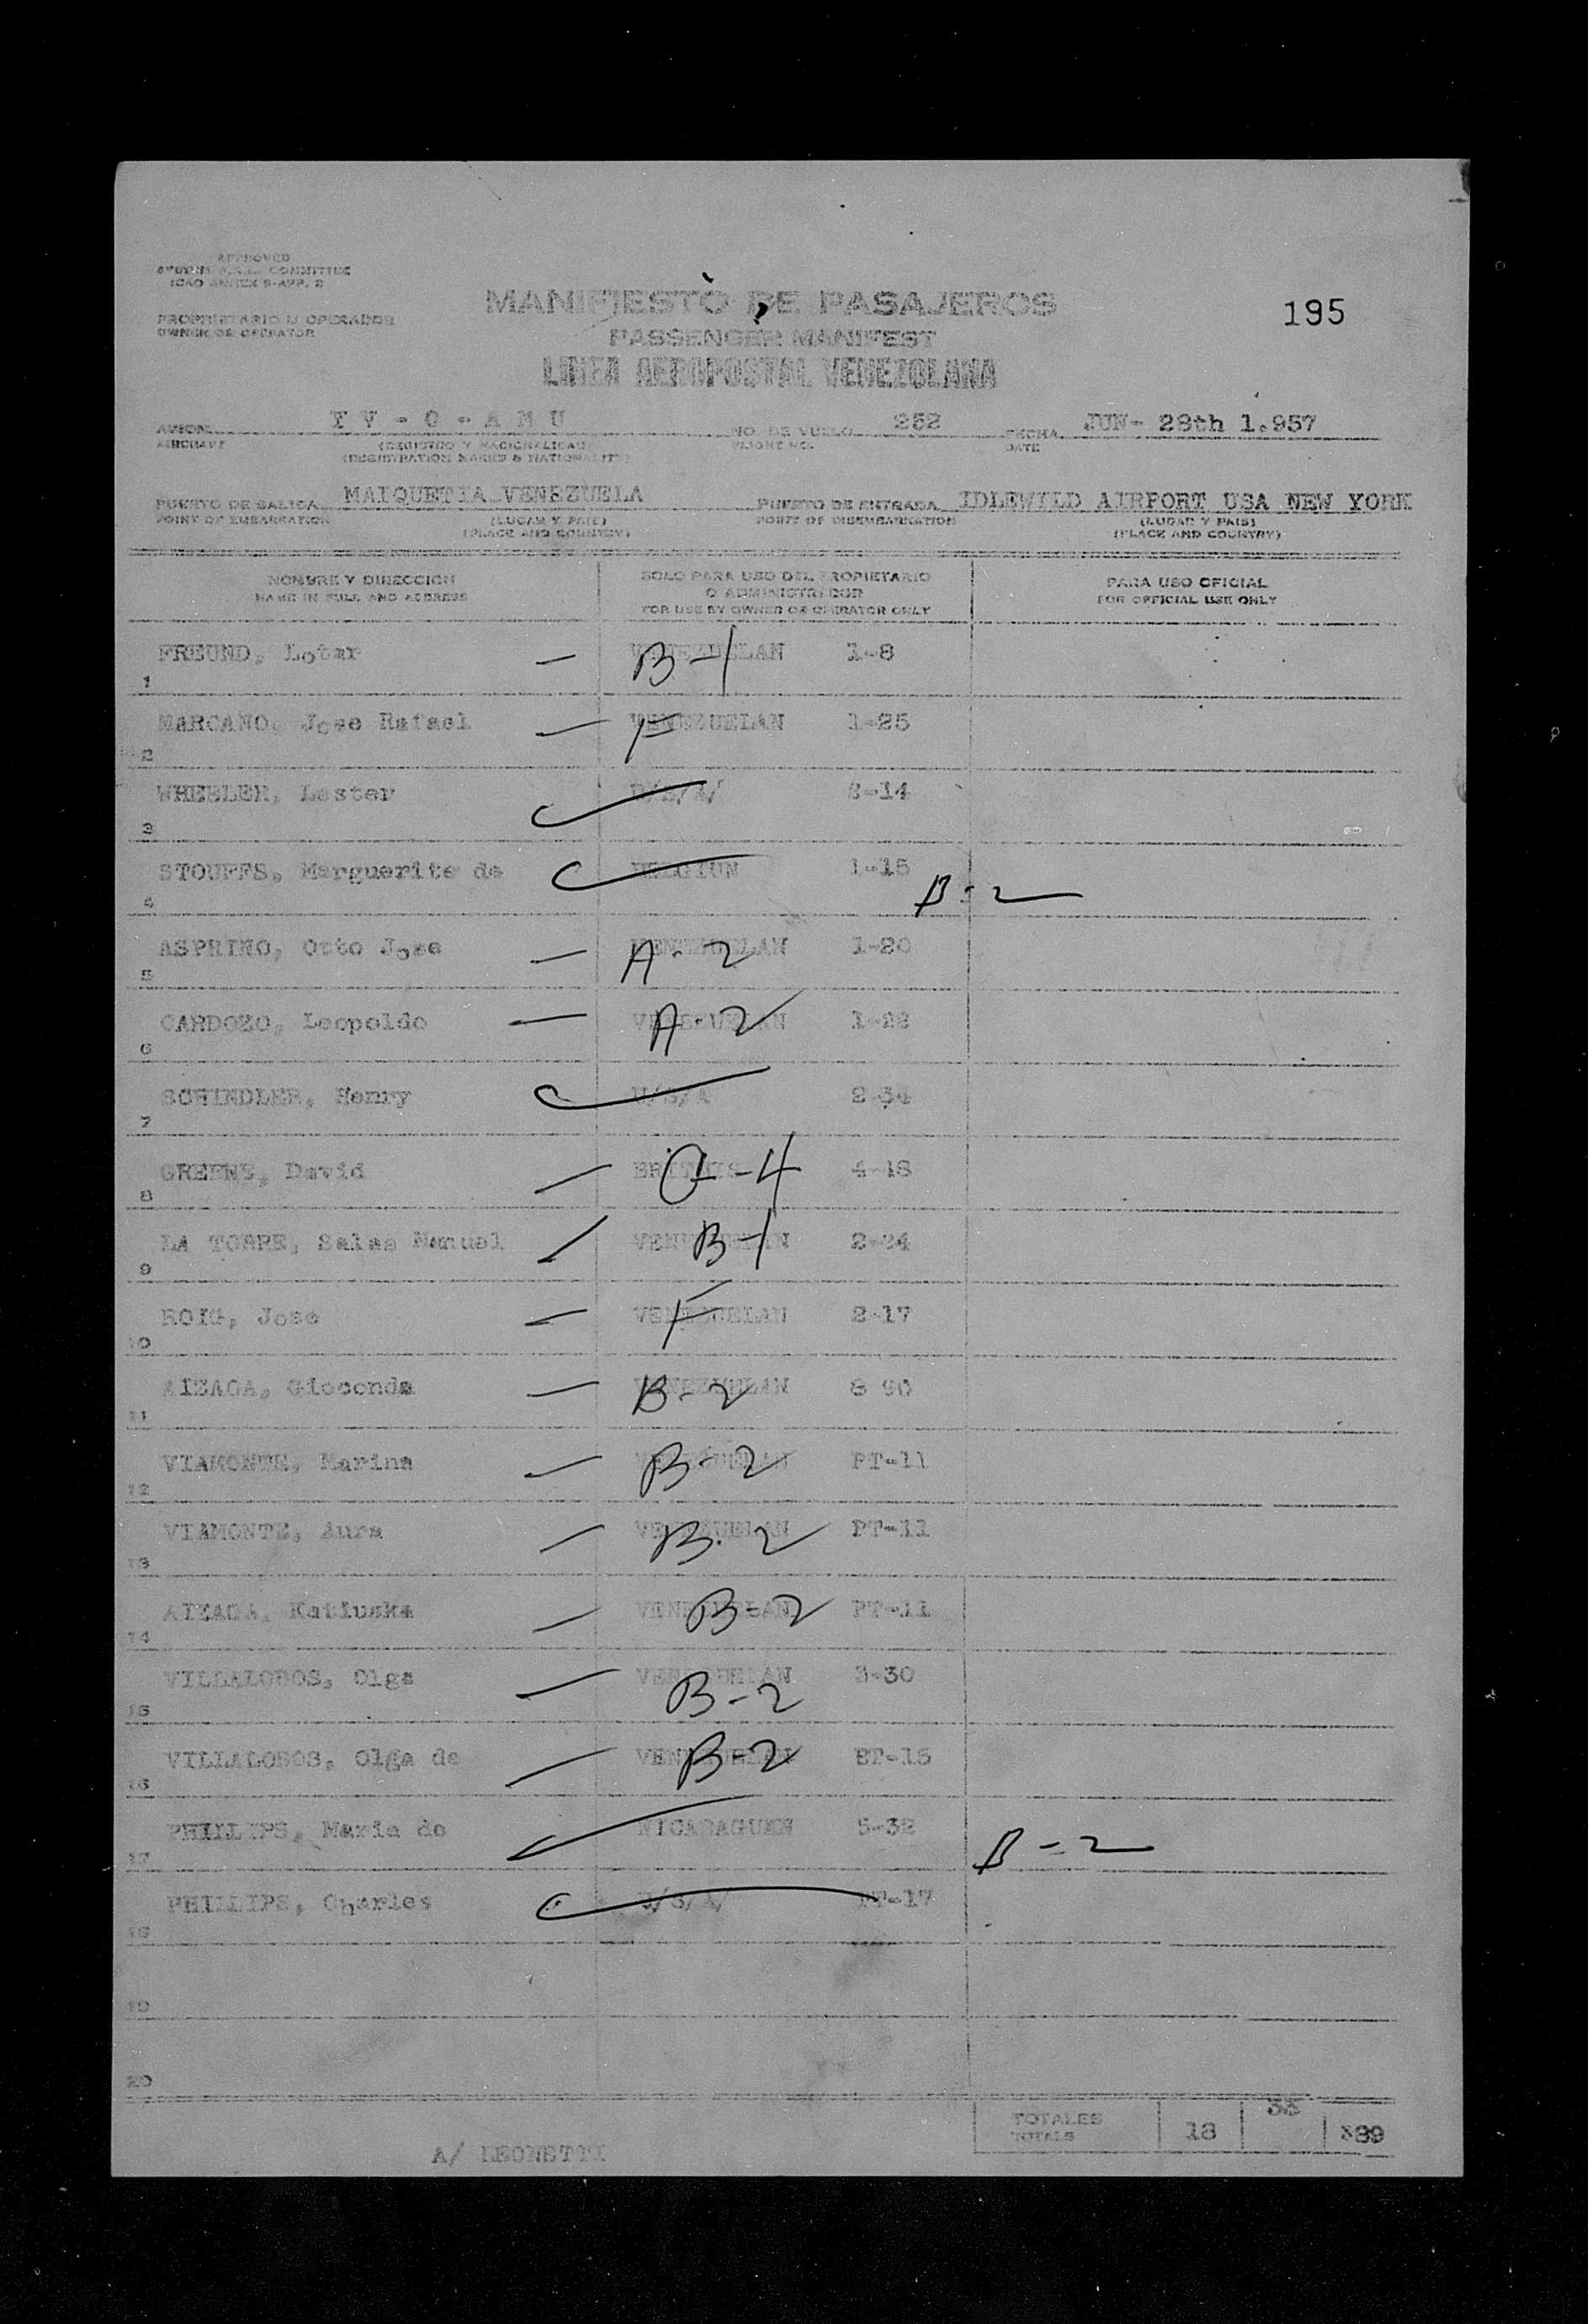 APPROVED
SYSTEM F.A.L. COMMITTEE
ICAO ANNEX 9-APP. 2
PROPRIETARIO U OPERADOR
OWNER OR OPERATOR
MANIFIESTO DE PASAJEROS
195
PASSENGER MANIFEST
LINEA AEROPOSTAL VENEZOLANA
AVION Y V - C - A M U NO. DE VUELO 252 FECHA JUN- 28th 1.957
AIRCRAFT (REGISTRO Y NACIONALIDAD) FLIGHT NO. DATE
(REGISTRATION MARKS & NATIONALITY)
PUERTO DE SALIDA MAIQUETIA VENEZUELA PUERTO DE ENTRADA IDLEWILD AIRPORT USA NEW YORK
POINT OF EMBARKATION (LUGAR Y PAIS) POINT OF DISEMBARKATION (LUGAR Y PAIS)
(PLACE AND COUNTRY) (PLACE AND COUNTRY)
NOMBRE Y DIRECCION SOLO PARA USO DEL PROPIETARIO PARA USO OFICIAL
NAME IN FULL AND ADDRESS O ADMINISTRADOR FOR OFFICIAL USE ONLY
FOR USE BY OWNER OR OPERATOR ONLY
1 FREUND, Lotar — VENEZUELAN B-1 1-8
2 MARCANO, Jose Rafael — VENEZUELAN F 1-25
3 WHEELER, Lester U/S/A/ 3-14
4 STOUFFS, Marguerite de BELGIUN 1-15 B-2
5 ASPRINO, Otto Jose — VENEZUELAN A-2 1-20
6 CARDOZO, Leopoldo — VENEZUELAN A-2 1-22
7 SCHINDLER, Henry U/S/A 2-34
8 GREENE, David — 4-18
9 LA TORRE, Salas Manuel VENEZUELAN B-1 2-24
10 ROIG, Jose — VENEZUELAN F 2-17
11 AIZAGA, Gioconda — VENEZUELAN B-2
12 VIAMONTE, Marina — VENEZUELAN B-2 PT-11
13 VIAMONTE, Aura — VENEZUELAN B-2 PT-11
14 AIZAGA, Katiuska — VENEZUELAN B-2 PT-11
15 VILLALOBOS, Olga — VENEZUELAN B-2 3-30
16 VILLALOBOS, Olga de — VENEZUELAN B-2 PT-15
17 PHILLIPS, Maria de NICARAGUEN 5-32 B-2
18 PHILLIPS, Charles U/S/A/ PT-17
19
20
TOTALES 18 33
TOTALS
A/ LEONETTI